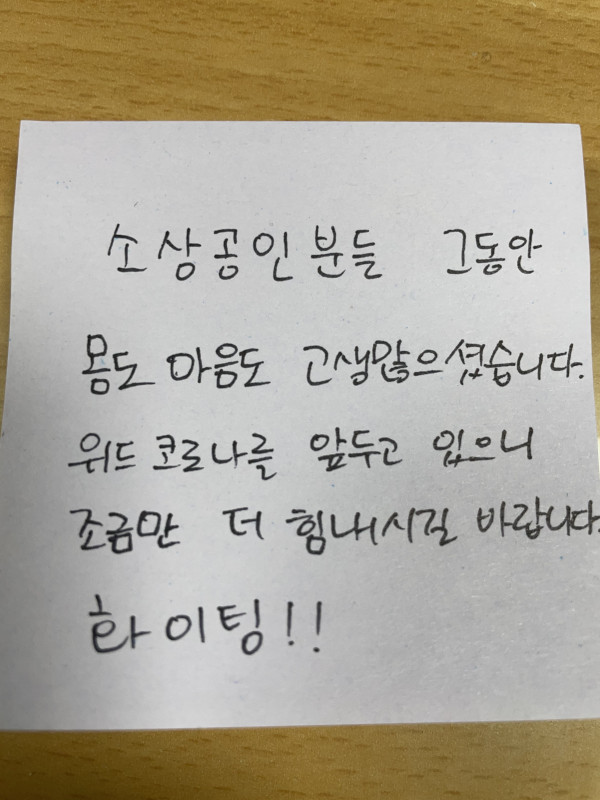 소상공인분들 그동안
몸도 마음도 고생많으셨습니다.
위드 코로나를 앞두고 있으니
조금만 더 힘내시길 바랍니다.
화이팅!!